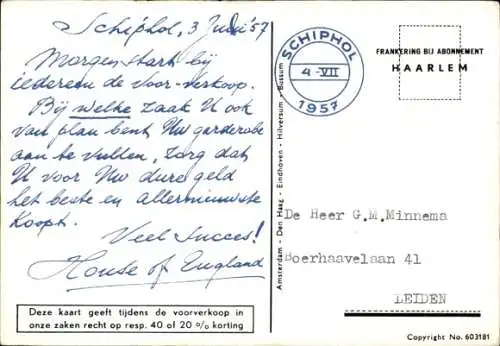 Schiphol, 3 Juli '57
Morgen start bij
iedereen de voor-verkoop.
Bij welke zaak U ook
van plan bent, Uw garderobe
aan te vullen, zorg dat
U voor Uw dure geld
het beste en allernieuwste
koopt.
Veel succes!
House of England
Deze kaart geeft tijdens de voorverkoop in
onze zaken recht op resp. 40 of 20 % korting
Amsterdam - Den Haag - Eindhoven - Hilversum - Bussum
SCHIPHOL
4-VII
1957
FRANKERING BIJ ABONNEMENT
HAARLEM
De Heer G.M.Minnema
Boerhaavelaan 41
LEIDEN
Copyright No. 603181